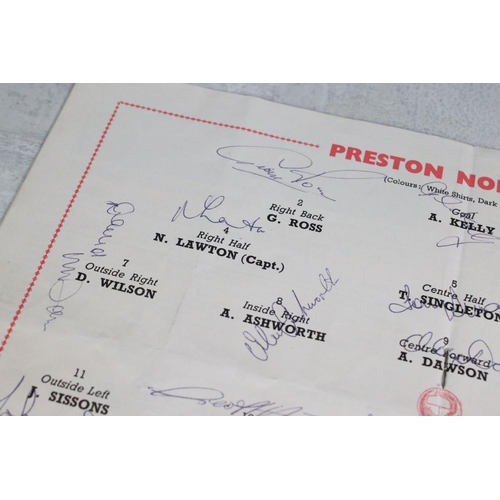 PRESTON NOR
(Colours: White Shirts, Dark
2
Right Back
G. ROSS
Goal
A. KELLY
4
Right Half
N. LAWTON (Capt.)
5
Centre Half
T. SINGLETON
7
Outside Right
D. WILSON
David Wilson
8
Inside Right
A. ASHWORTH
9
Centre Forward
A. DAWSON
11
Outside Left
J. SISSONS